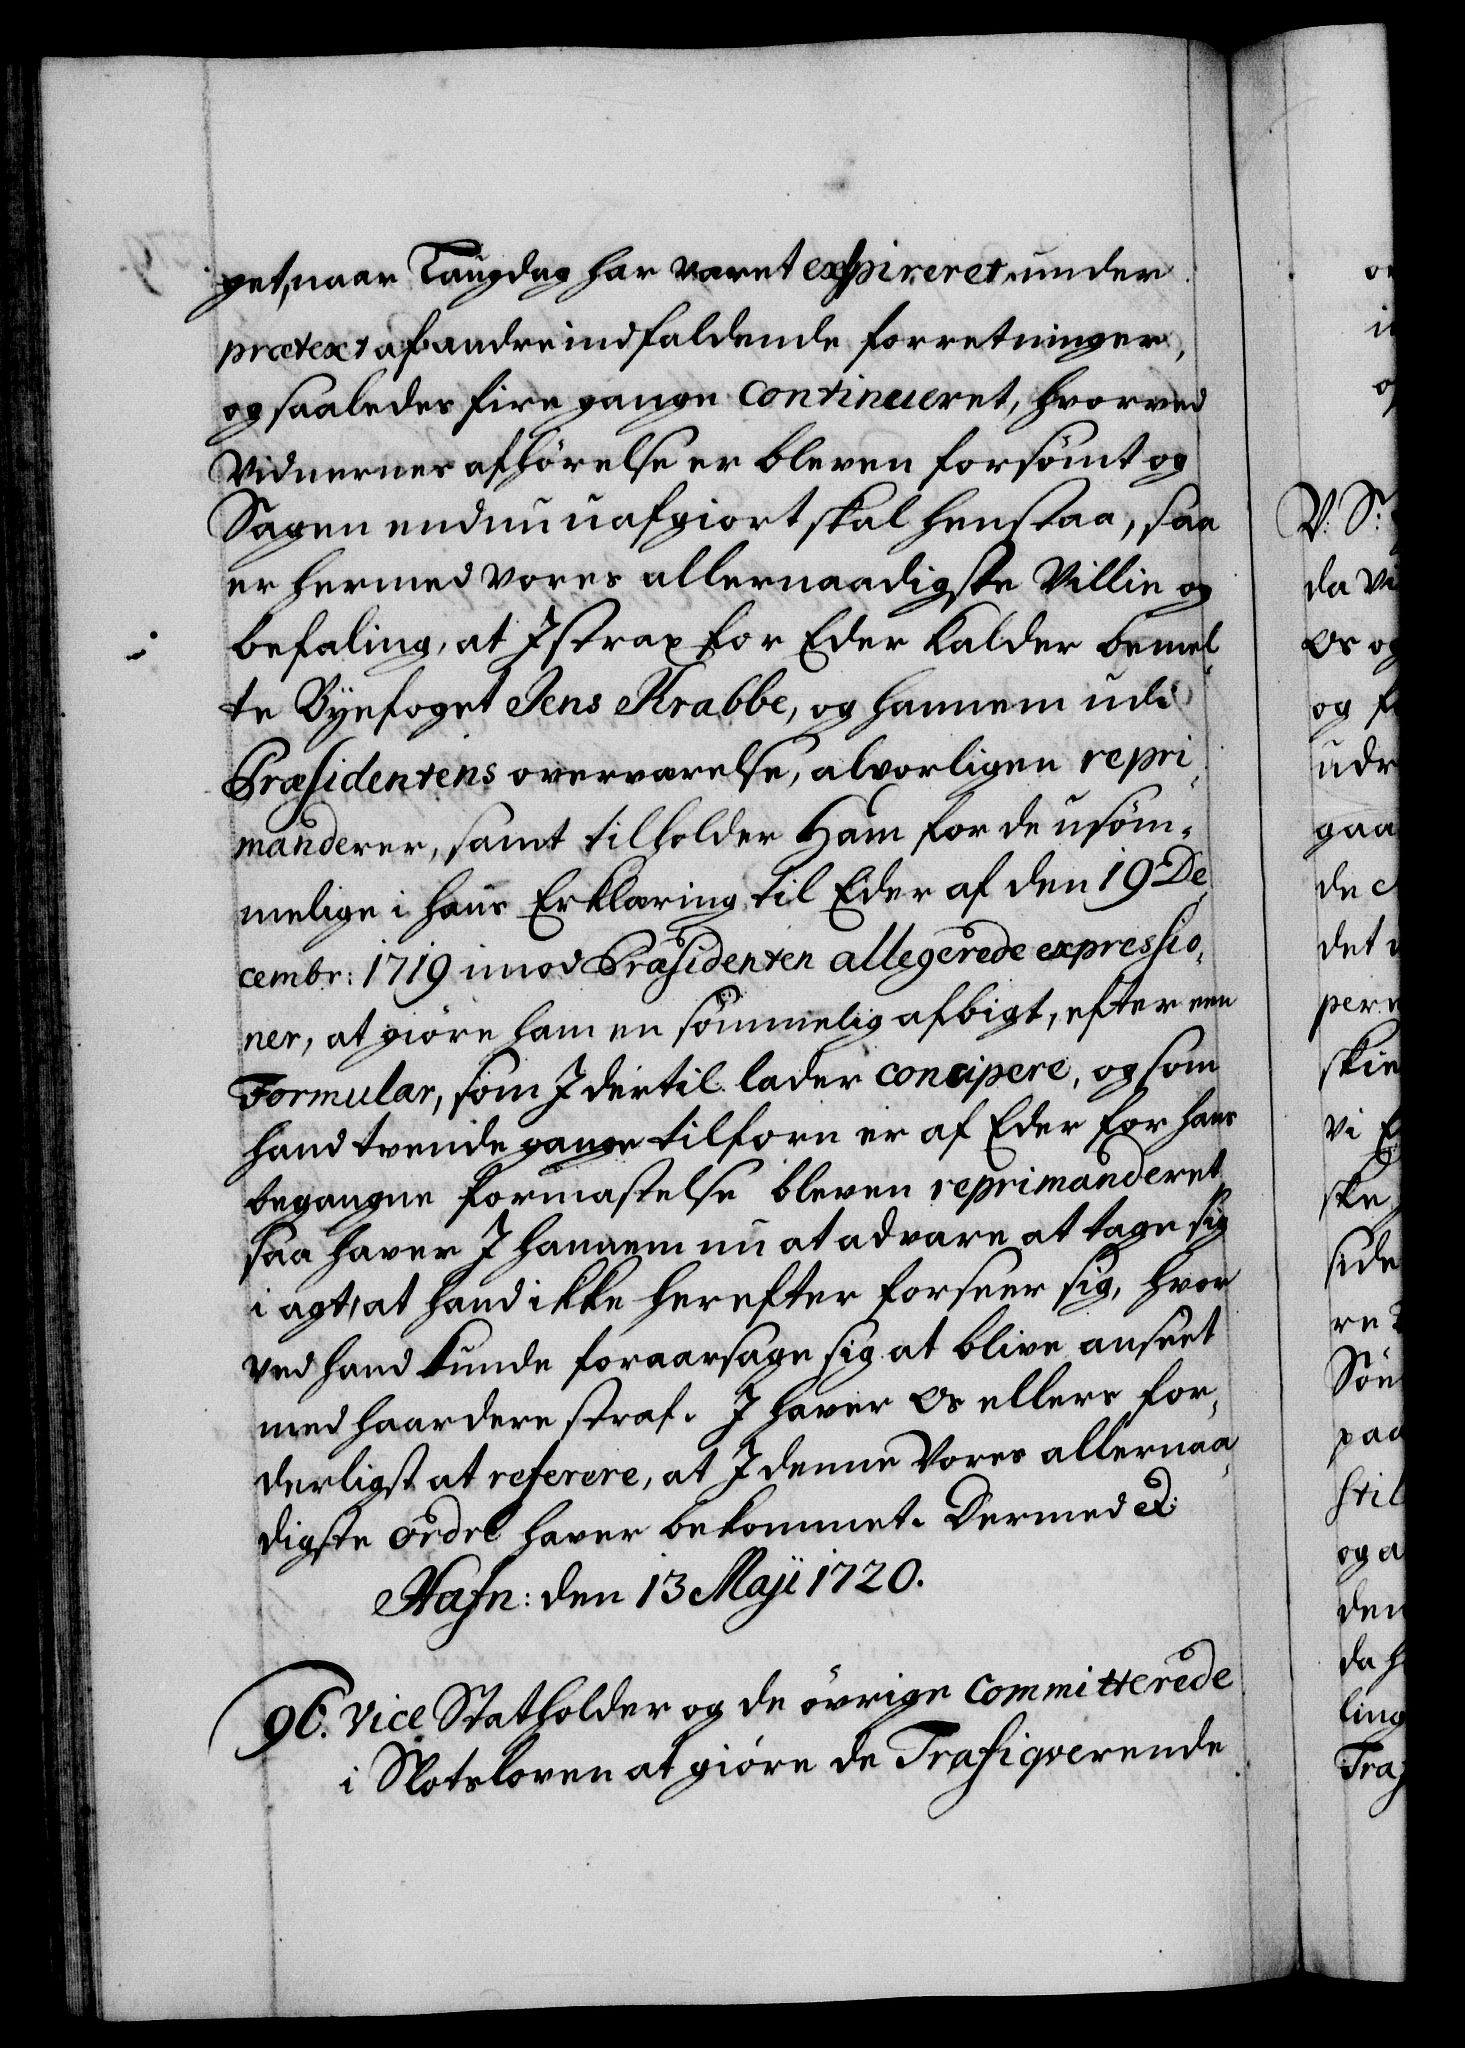 get, naar Taugdag har været expireret, under
prætext af andre indfaldende forretninger,
og saaledes fire gange continueret, hvorved
Vidnernes afhørelse er bleven forsømt og
Sagen endnu uafgiort skal henstaa, saa
er hermed vores allernaadigste Villie og
befaling, at I strax for Eder kalder bemel-
te Byefoget Jens Krabbe, og hannem udi
Præsidentens overværelse, alvorligen repri-
manderer, samt tilholder Ham for de usøm-
melige i hans Erklæring til Eder af den 19 De-
cembr: 1719 imod Præsidenten allegerede expressio-
ner, at giøre ham en sømmelig afbigt, efter een
Formular, som I dertil lader concipere, og som
hand tvende gange tilforn er af Eder for hans
begangne formastelse bleven reprimanderet
saa haver I hannem nu at advare at tage sig
i agt, at hand ikke herefter forseer sig, hvor
ved hand kunde foraarsage sig at blive anseet
med haardere straf. I haver Os ellers for-
derligst at referere, at I denne Vores allernaa-
digste ordre haver bekommet. Dermed &:
Hafn: den 13 Maji 1720.
96. Vice Statholder og de øvrige Committerede
i Slotsloven at giøre de Trafiqverende
V: Sr:
da vi
Os og
og
udr
gaa
de
det
per
skie
vi
ske
side
re
Søn
paa
stil
og a
den
da h
ling
Traf